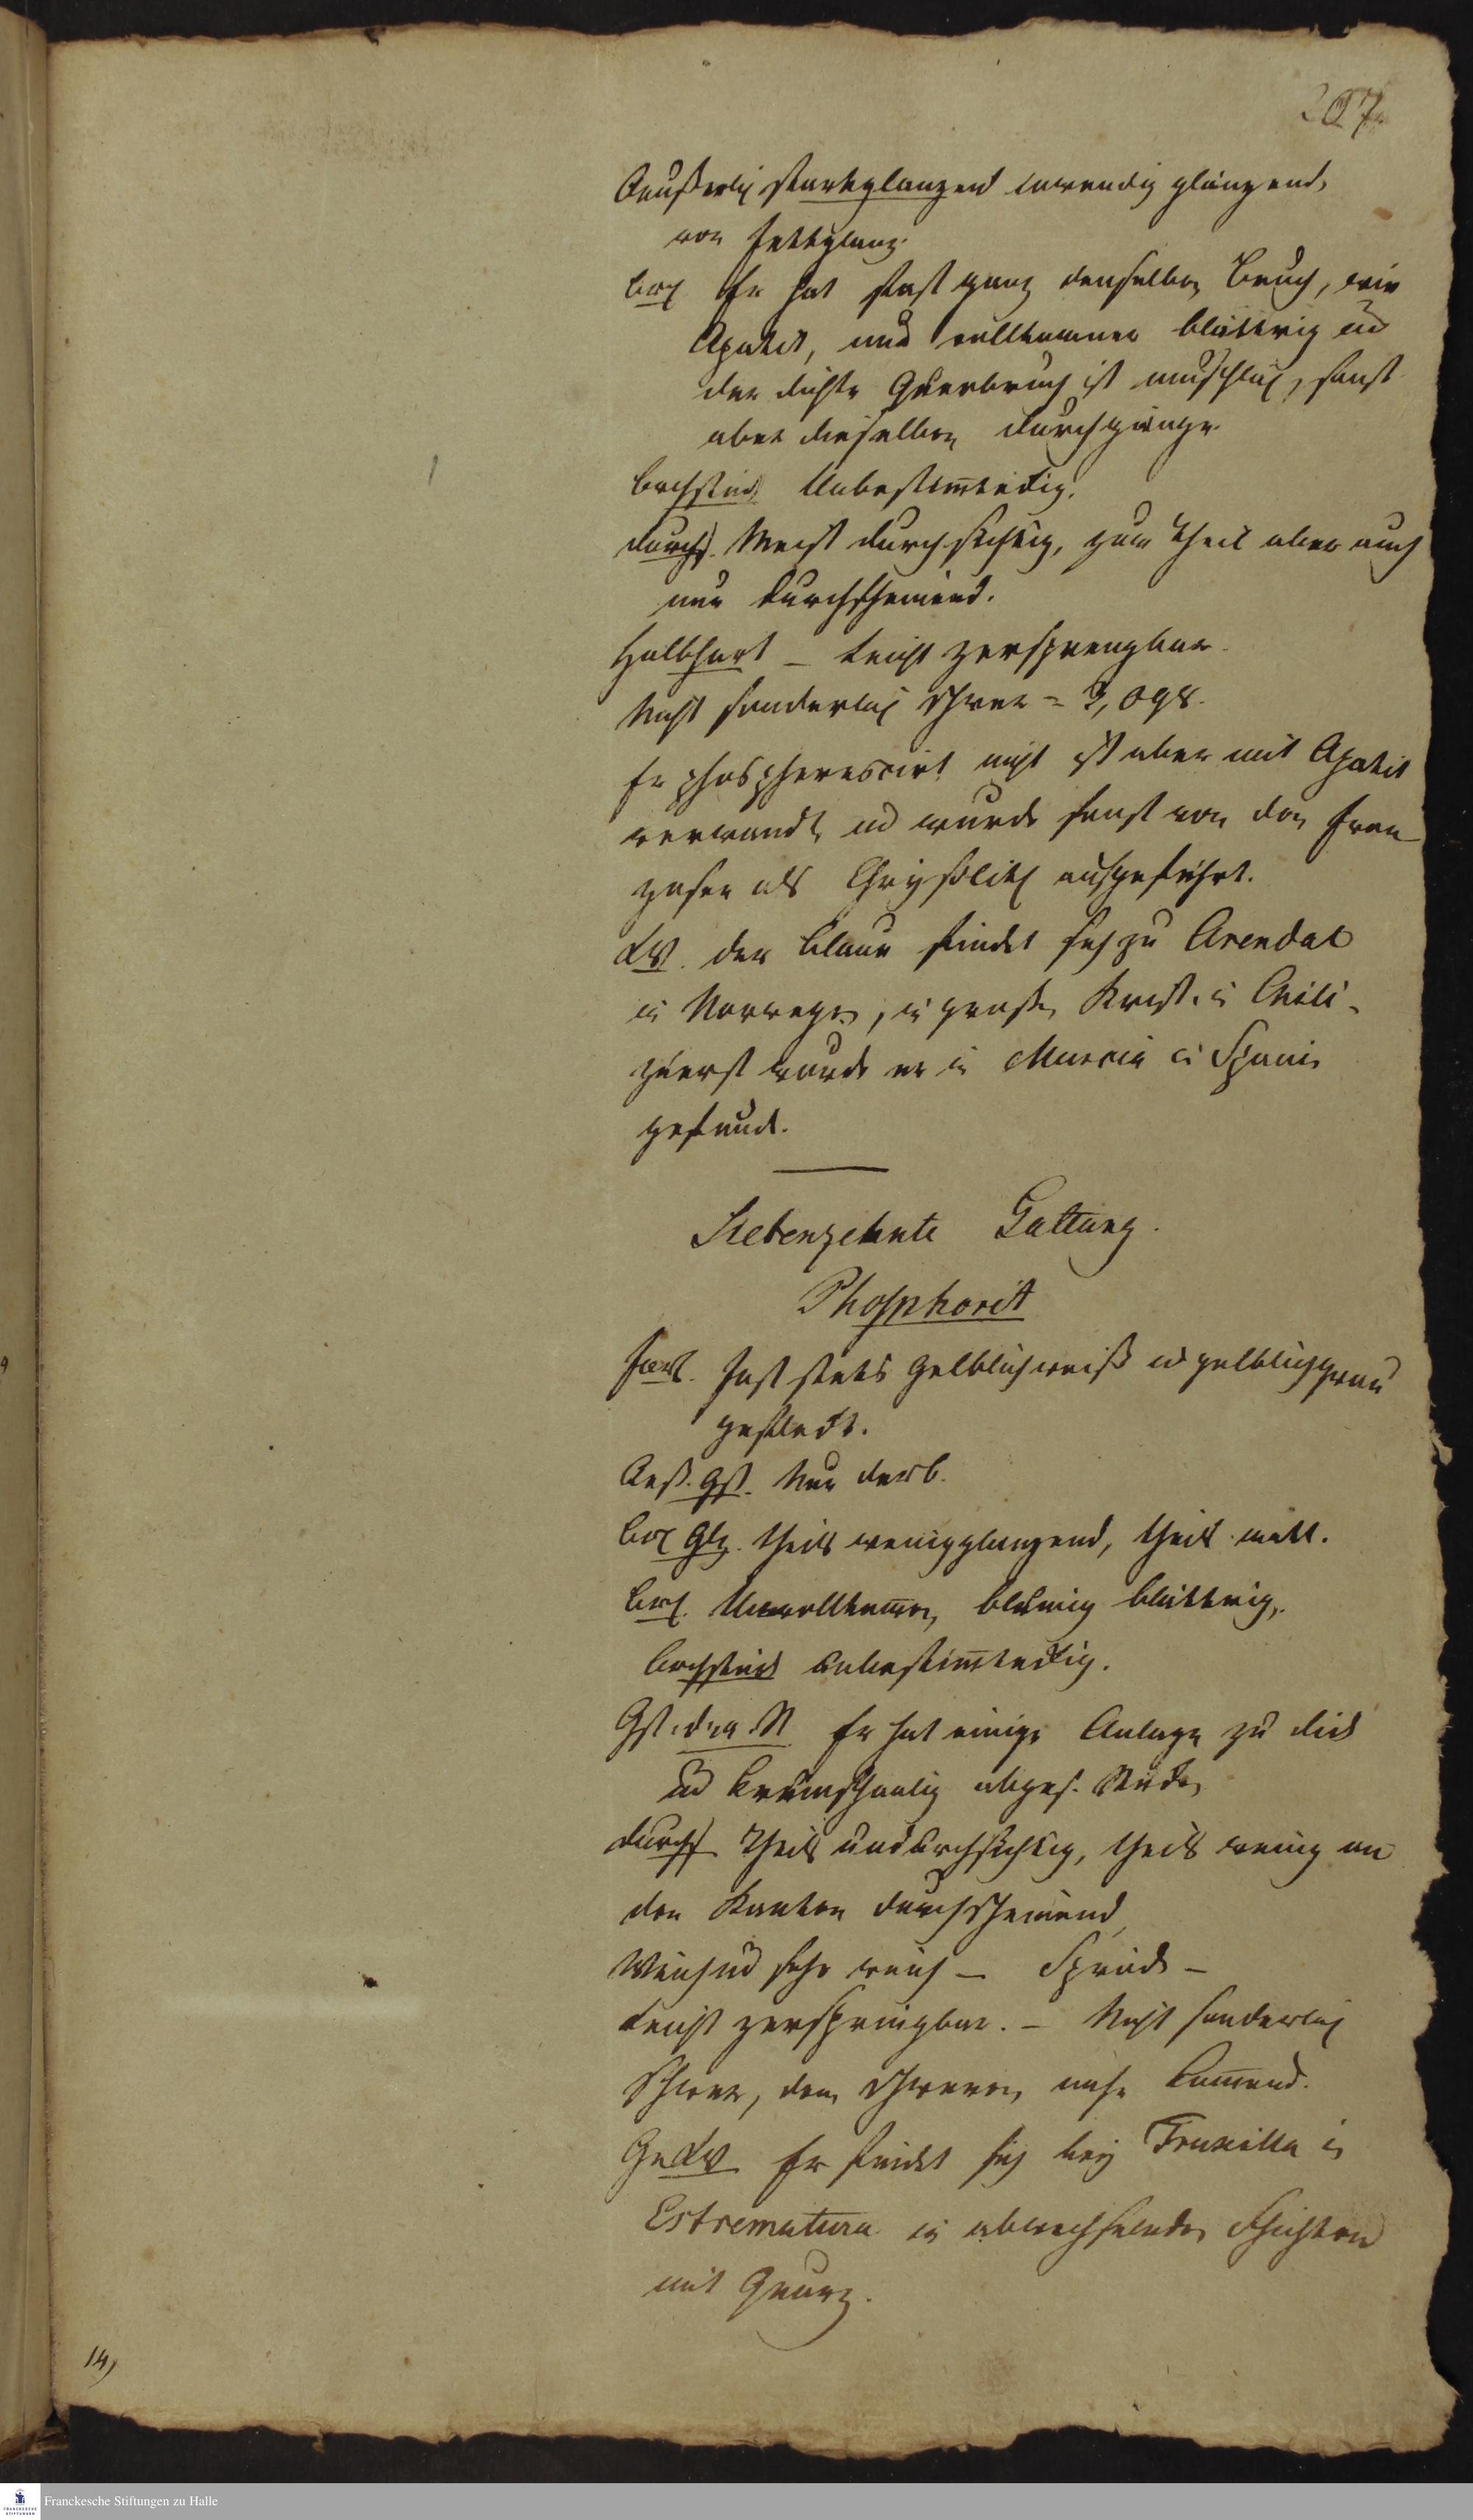 207.
Aeußerlich starkglänzend inwendig glänzend,
von Fettglanz.
Brch Er hat fast ganz denselben Bruch, wie
Apatit, nur vollkommen blättrig und
der dichte Querbruch ist muschlich, sonst
aber dieselben Durchgänge.
Brchstück Unbestimmteckig.
Durchs. Meist durchsichtig, zum Theil aber auch
nur durchscheinend.
Halbhart – Leicht zersprengbar.
Nicht sonderlich schwer = 3,098.
Er phosphorescirt nicht ist aber mit Apatit
verwandt, und wurde sonst von den Fran-
zosen als Chrysolith aufgeführt.
Der blaue findet sich zu Arendal
in Norwegen, in großen Krist. in
zuerst wurde er in Murcia in Spanien
gefunden.
Siebenzehnte Gattung.
Phosphorit
Farb. Fast stets gelblichweiß und gelblichgrau
gefleckt.
Aeß. Gst. Nur derb.
Brch Glz. theils wenigglänzend, theils matt.
Brch. Unvollkommen, blumig blättrig.
Brchstück unbestimmteckig.
Gst. d. a. St. Er hat einige Anlage zu dick
und krummschaalig abges. Stücken
Durchs Theils undurchsichtig, theils wenig an
den Kanten durchscheinend,
Weich und sehr weich – Spröde –
Leicht zersprengbar. – Nicht sonderlich
schwer, dem schweren nahe kommend.
Er findet sich bey Truxilla in
Estrematura in abwechselnden Schichten
mit Quarz.
14)
Franckesche Stiftungen zu Halle